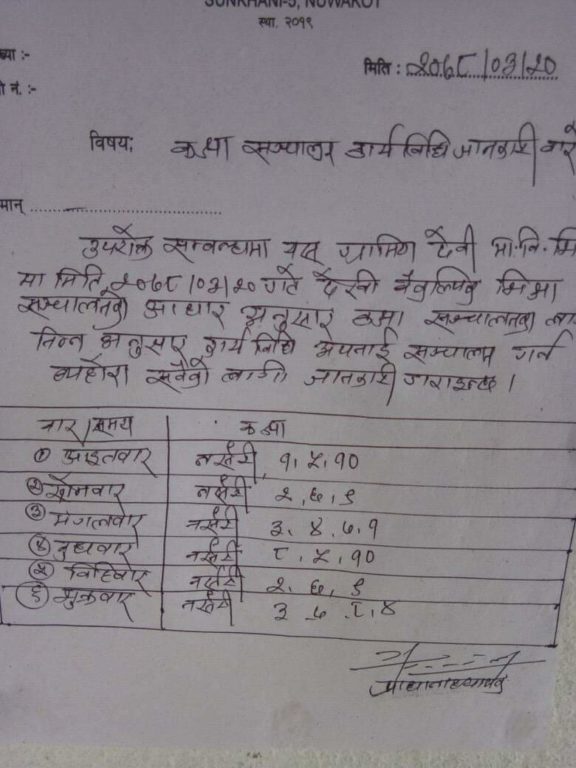 SUNKHANI-5, NUWAKOT
स्था. २०१९
मिति : २०७८/०३/२०
नं. :-
विषय: कक्षा सञ्चालन कार्यविधि जानकारी बारे
मान्
उपरोक्त सम्बन्धमा यस ग्रामिण देवी मा. वि.
मा मिति २०७८/०३/२० गते देखी बैकल्पिक
सञ्चालनको आधार अनुसार कक्षा सञ्चालनको
निम्न अनुसार कार्य विधि अपनाई सञ्चालन गर्ने
व्यहोरा सबैको लागी जानकारी गराइन्छ।
बार/समय कक्षा
① आइतवार नर्सरी, १, ५, १०
② सोमवार नर्सरी २, ६, ९
③ मंगलवार नर्सरी ३, ४, ७, १
④ बुधवार नर्सरी ८, ५, १०
⑤ बिहिवार नर्सरी २, ६, ९
⑥ शुक्रवार नर्सरी ३, ७, ८, ४
प्रधानाध्यापक